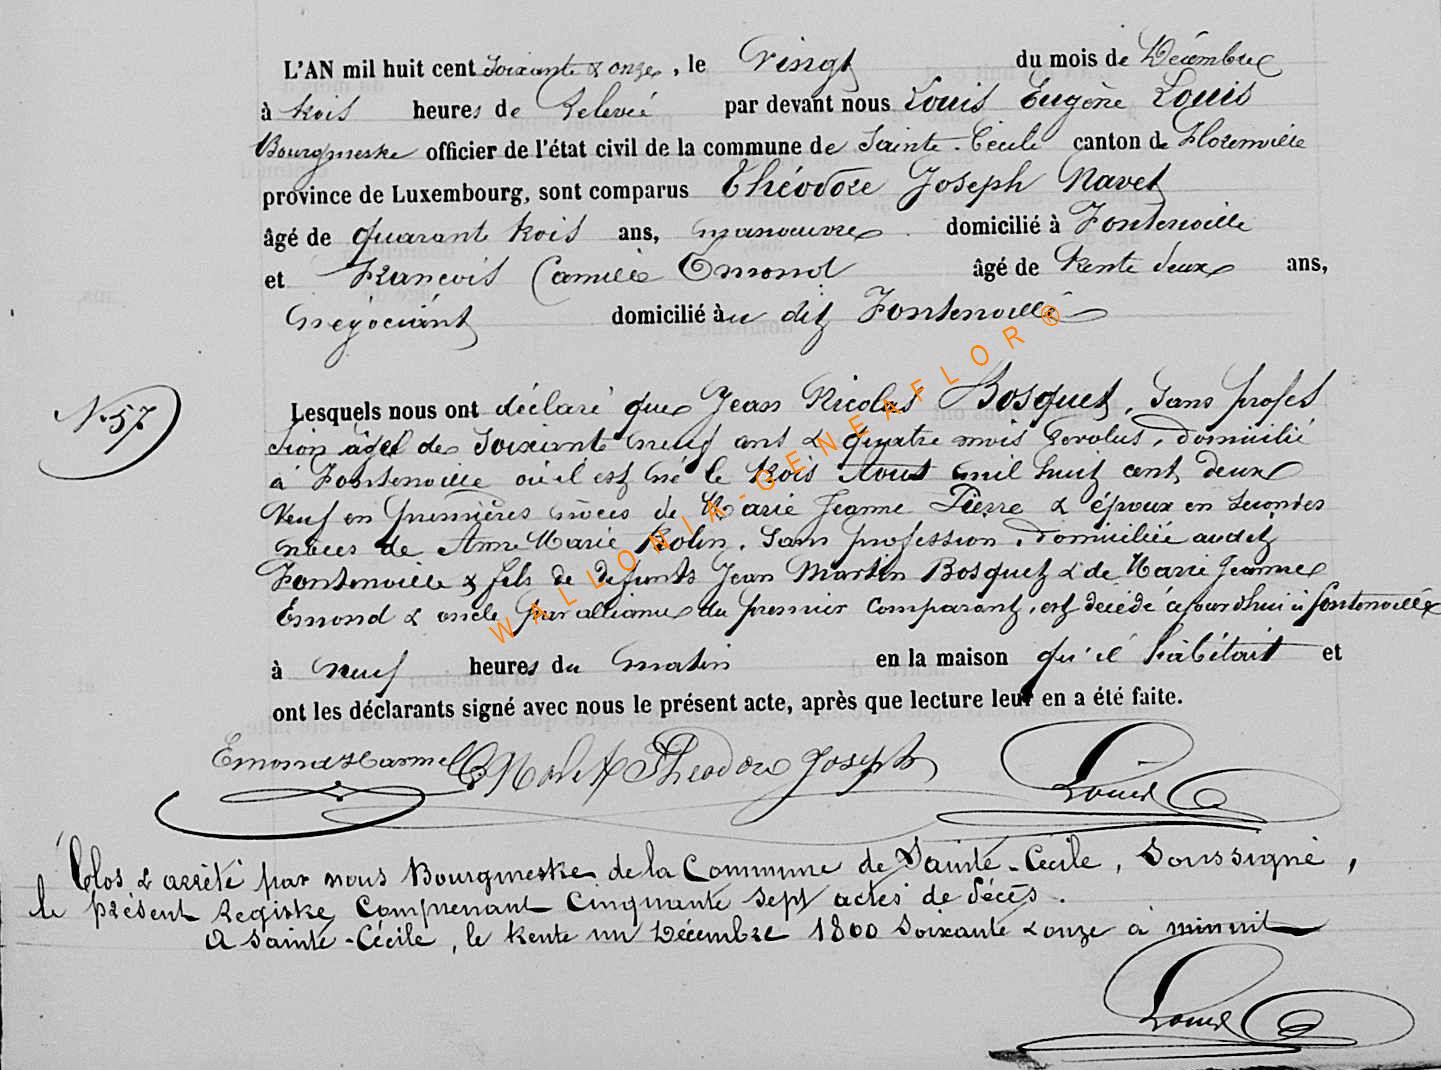 L'AN mil huit cent soixante & onze, le Vingt du mois de Décembre
à trois heures de Relevée par devant nous Louis Eugène Louis
Bourgmestre officier de l'état civil de la commune de Sainte-Cécile canton de Florenville
province de Luxembourg, sont comparus Théodore Joseph Navet
âgé de quarante trois ans, manoeuvre domicilié à Fontenoille
et François Camille Emond âgé de trente deux ans,
négociant domicilié àu dit Fontenoille
N° 57
Lesquels nous ont déclaré que Jean Nicolas Bosquet, sans profes
sion âgé de soixante neuf ans & quatre mois révolus, domicilié
à Fontenoille où il est né le trois Aout mil huit cent deux
Veuf en premières nôces de Marie Jeanne Pierre & époux en secondes
nôces de Anne Marie Rolin, sans profession, domiciliée audit
Fontenoille & fils de défunts Jean Martin Bosquet & de Marie Jeanne
Emond & oncle par alliance du premier comparant, est décédé aujourdhui à fontenoille
à neuf heures du matin en la maison qu'il habitait et
ont les déclarants signé avec nous le présent acte, après que lecture leur en a été faite.
Emond Théodore Joseph Louis
Clos & arrêté par nous Bourgmestre de la Commune de Sainte-Cécile, Soussigné,
le présent Registre comprenant cinquante sept actes de décès.
A Sainte-Cécile, le trente un Décembre 1800 soixante & onze à minuit
Louis
WALLONIA-GENEAFLOR®